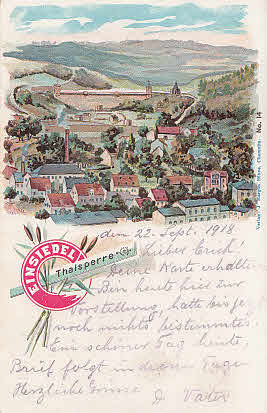 No. 14
EINSIEDEL
Thalsperre.
den 22. Sept. 1918
Lieber Erich!
Deine Karte erhalten
Bin heute hier zur
Vorstellung, hatte bis jetzt
noch nichts bestimmtes.
Ein schöner Tag heute,
Brief folgt in diesen Tagen
Herzliche Grüsse
D. Vater